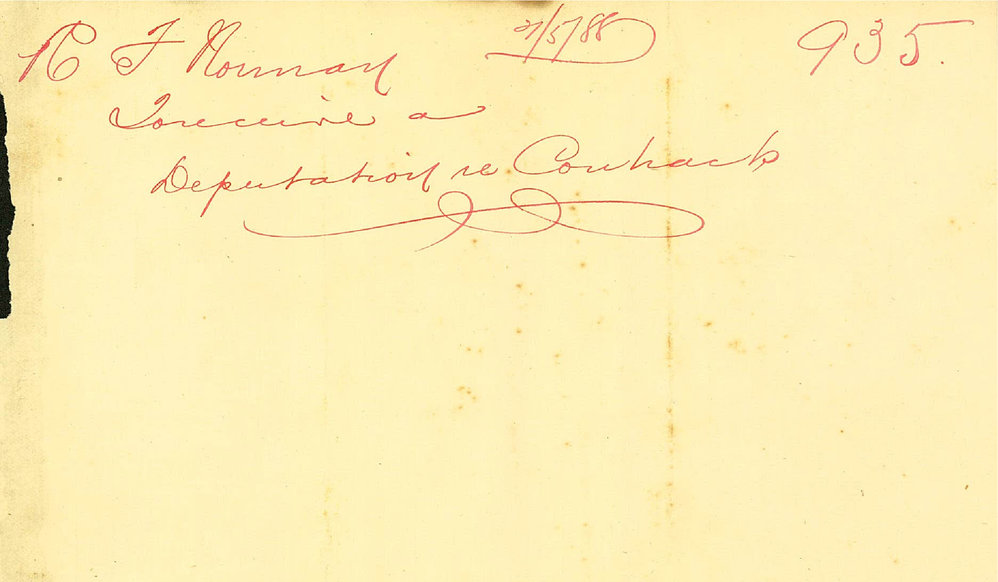 R F Norman 27/5/88 935.
To receive a
Deputation re Contracts